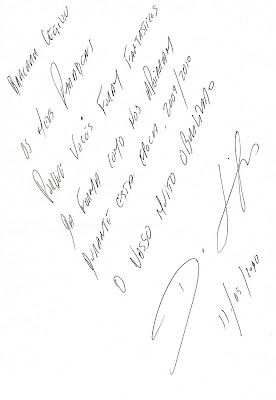 MARCHAM CECILIU
OS MEUS PARABÉNS
PORQUE VOCÊS FORAM FANTASTICOS
DA FORMA COMO NOS APOIARAM
DURANTE ESTA EPOCA 2009/2010
O NOSSO MUITO OBRIGADO
11/05/2010